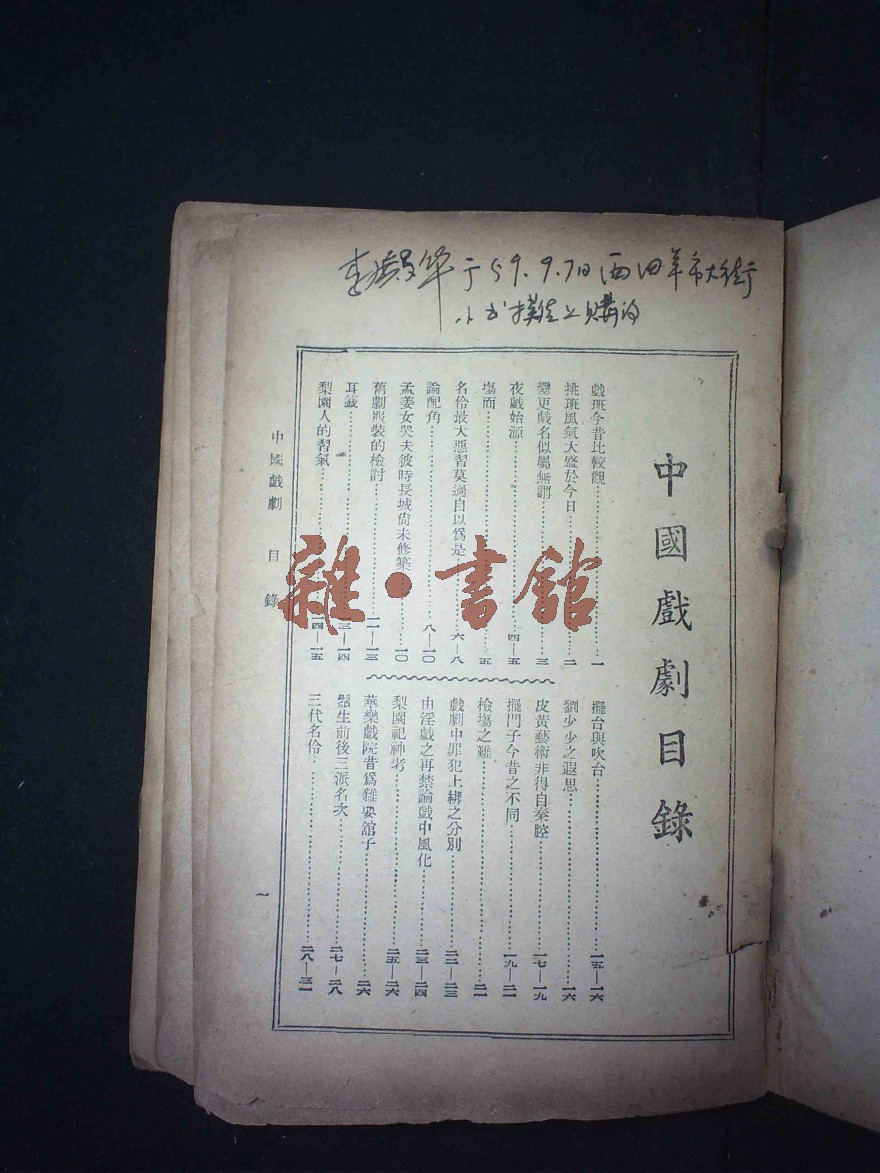 于59.9.7日西四羊市大街
小书摊上購得
中國戲劇目錄
戲班今昔比較觀……一
挑班風氣大盛於今日……二
變更戲名似屬無謂……三
夜戲始源……四—五
塲面……五
名伶最大惡習莫過自以爲是……六—八
論配角……八—一〇
孟姜女哭夫彼時長城尙未修築……一〇
舊劇服裝的檢討……一一—一三
耳籤……一三—一四
梨園人的習氣……一四—一五
擺台與吹台……一五—一六
劉少少之遐思……一六
皮黃藝術非得自秦腔……一七—一九
擺門子今昔之不同……一九—二一
檢塲之難……二一
戲劇中罪犯上綁之分別……二二—二三
由淫戲之再禁論戲中風化……二三—二四
梨園祀神考……二五—二六
華樂戲院昔爲雜耍館子……二六
鬚生前後三派名次……二七—二八
三代名伶……二八—三一
中國戲劇 目錄
一
雜·書館